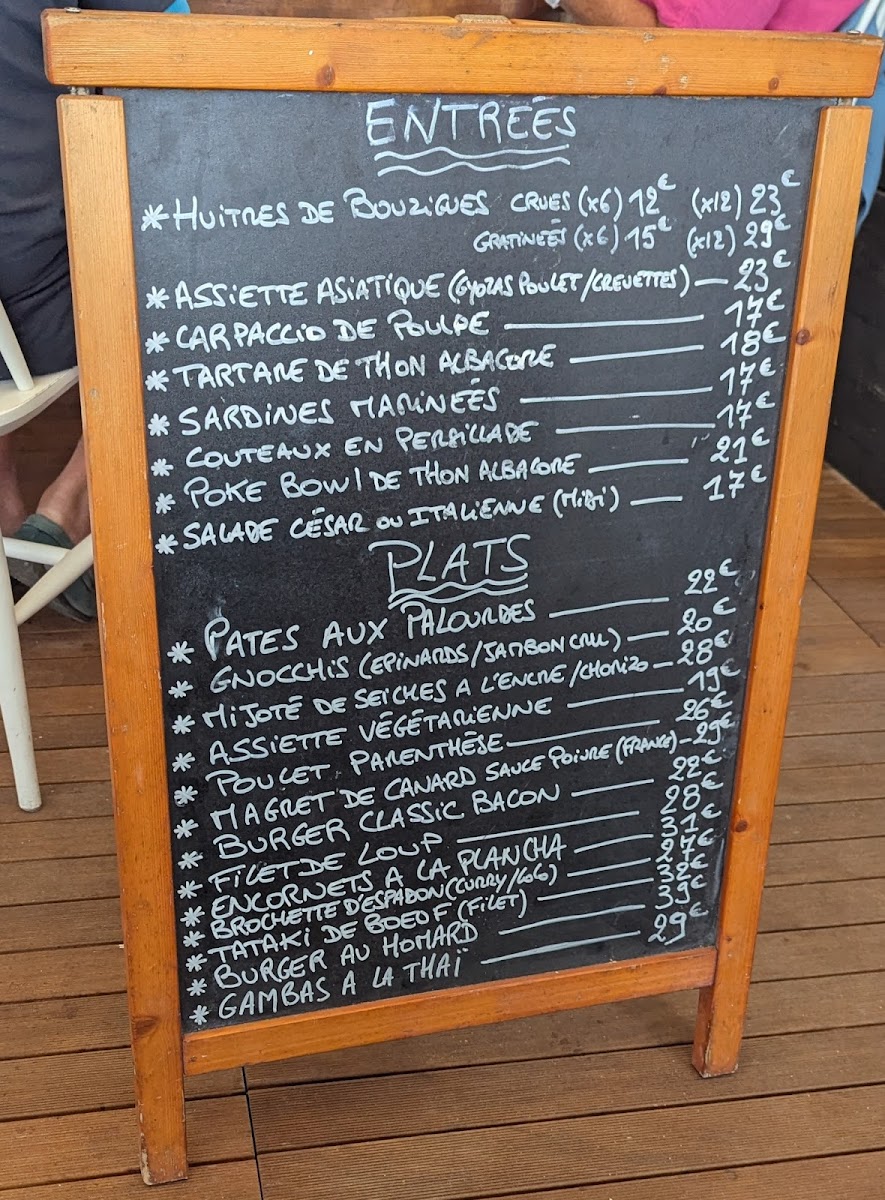 ENTREÉS
* HUITRES DE BOUZIGUES CRUES (x6) 12€ (x12) 23€
GRATINEÉS (x6) 15€ (x12) 29€
* ASSIETTE ASIATIQUE (GYOZAS POULET/CREVETTES) — 23€
* CARPACCIO DE POULPE — 17€
* TARTARE DE THON ALBACORE — 18€
* SARDINES MARINEÉS — 17€
* COUTEAUX EN PERSILLADE — 17€
* POKE BOWl DE THON ALBACORE — 21€
* SALADE CÉSAR OU ITALIENNE (MiBi) — 17€
PLATS
* PATES AUX PALOURDES — 22€
* GNOCCHIS (EPINARDS/JAMBON CRU) — 20€
* MIJOTÉ DE SEICHES A L'ENCRE/CHORIZO — 28€
* ASSIETTE VÉGÉTARIENNE — 19€
* POULET PARENTHÈSE — 26€
* MAGRET DE CANARD SAUCE POIVRE (FRANCE) — 29€
* BURGER CLASSIC BACON — 22€
* FILET DE LOUP — 28€
* ENCORNETS A LA PLANCHA — 31€
* BROCHETTE D'ESPADON (CURRY/COCO) — 27€
* TATAKI DE BOEOF (FILET) — 32€
* BURGER AU HOMARD — 39€
* GAMBAS A LA THAÏ — 29€